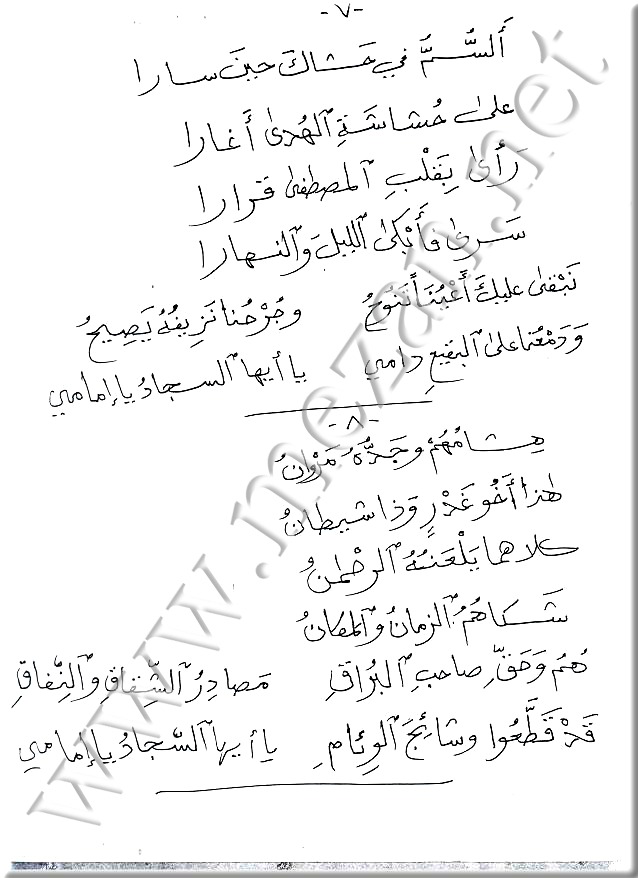 -٧-
أَلسُّمُّ في حَشاكَ حينَ سارا
على حُشاشَةِ ٱلهُدى أَغارا
رَأى بِقَلْبِ ٱلمصطفى قرارا
سَرى فأَبْكى ٱلليلَ وَٱلنهارا
نَبْقى عليكَ أَعْيُناً تَنُوحُ وجُرْحُنا نَزيفُهُ يَصِيحُ
وَدَمْعُنا على ٱلبقيعِ دامي يا أيها ٱلسجادُ يا إمامي
-٨-
هِشامُهُمْ وجَدُّهُ مَرْوانُ
هٰذا أَخُو غَدْرٍ وَذا شيطانُ
كلاهما يَلْعَنُهُ ٱلرحْمٰنُ
شَكاهُمُ ٱلزمانُ وٱلمكانُ
هُمُ وَحَقِّ صاحبِ ٱلبُراقِ مَصادِرُ ٱلشِّقاقِ وٱلنِّفاقِ
قَدْ قَطَّعُوا وشائِجَ ٱلوِئامِ يا أيها ٱلسَّجادُ يا إمامي
www.mezan.net